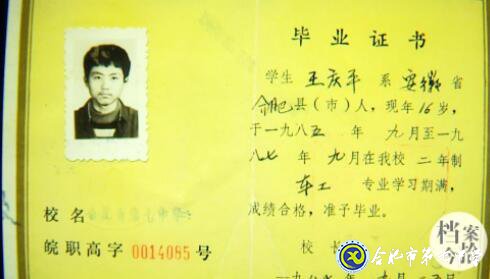 毕业证书
学生 王庆平 系 安徽 省
合肥县(市)人,现年16岁,
于一九八五 年 九月至一九
八七 年 九月在我校 二年制
车工 专业学习期满,
成绩合格,准予毕业。
校名
皖职高字 0014085 号
校 长
档案
合肥市第